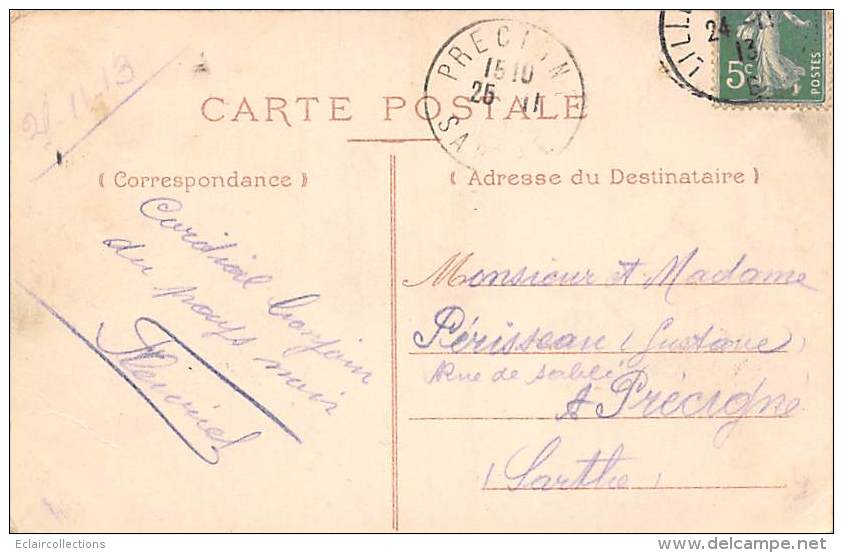 24 11 13
LILLE
24 - 11
13
5c
POSTES
PRECIGNE
15 10
25 11
SARTHE
21.11.13
CARTE POSTALE
(Correspondance)
(Adresse du Destinataire)
Cordial bonjour
du pays noir
Monsieur et Madame
Périsseau (Gustave)
Rue de sablé
A Précigné
(Sarthe)
Eclaircollections
www.delcampe.net